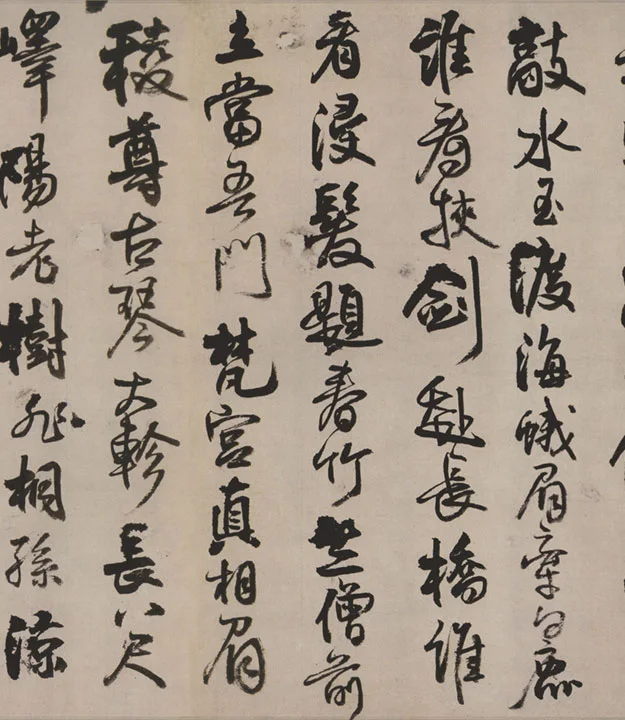 敲水玉渡海蛾眉牽白鹿
誰看挾劍赴長橋誰
看浸髮題春竹竺僧前
立當吾門梵宮真相眉
稜尊古琴大軫長八尺
嶧陽老樹非桐孫涼